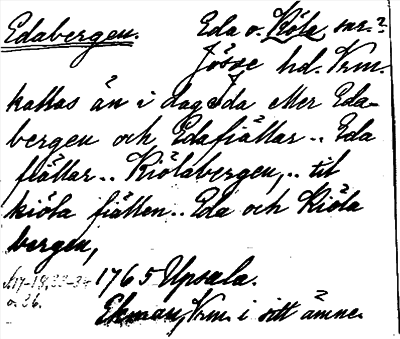 Edabergen. Eda o. Köla snr.?
Jösse hd. Vrm.
kallas än i dag Eda eller Eda-
bergen och Edafjällar .. Eda
fiällar .. Kiölabergen, .. til
kiöla fiällen .. Eda och Kiöla
bergen,
s.17-18, 33-34 1765 Upsala.
o. 36. Ekman, Vrm. i sitt ämne